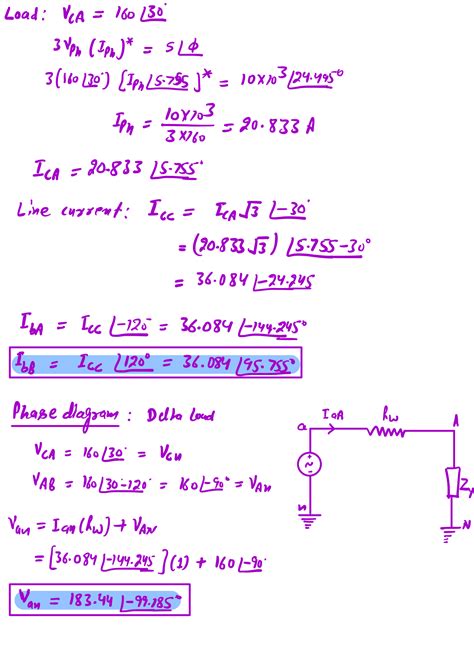 Load: V_CA = 160∠30°
3V_ph (I_ph)* = S∠φ
3(160∠30°) [I_ph∠5.755]* = 10×10³∠24.495°
I_ph = 10×10³ / 3×160 = 20.833 A
I_CA = 20.833∠5.755°
Line current: I_cC = I_CA√3∠-30°
= (20.833√3)∠5.755-30°
= 36.084∠-24.245
I_bA = I_cC∠-120° = 36.084∠-144.245°
I_bB = I_cC∠120° = 36.084∠95.755°
Phase diagram: Delta Load
V_CA = 160∠30° = V_Cn
V_AB = 160∠30-120° = 160∠-90° = V_AN
V_an = I_an(h_w) + V_AN
= [36.084∠-144.245](1) + 160∠-90
V_an = 183.44∠-99.185°
a I_aA h_w A
~
n N